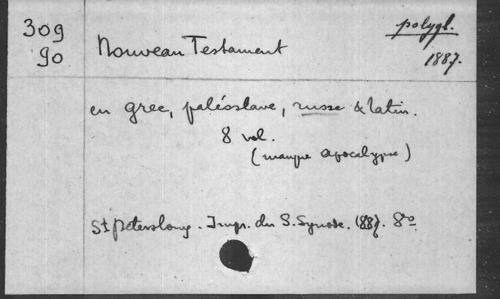 309
90
Nouveau Testament
polygl.
1887.
en grec, paléoslave, russe & latin.
8 vol.
(manque Apocalypse)
St Petersbourg. Impr. du S. Synode. 1887. 8o